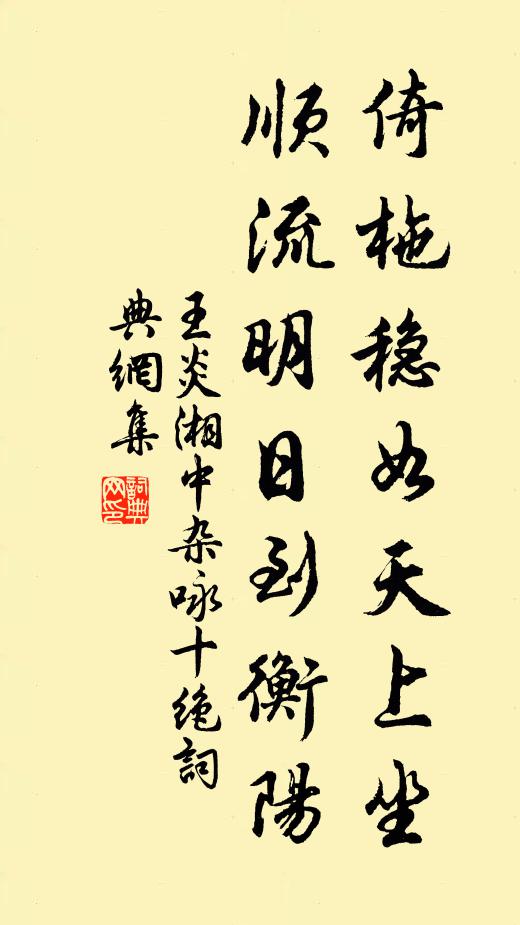 倚柂穏如天上坐
順流明日到衡陽
王炎湘中杂咏十绝詞
典網集
詞典网印